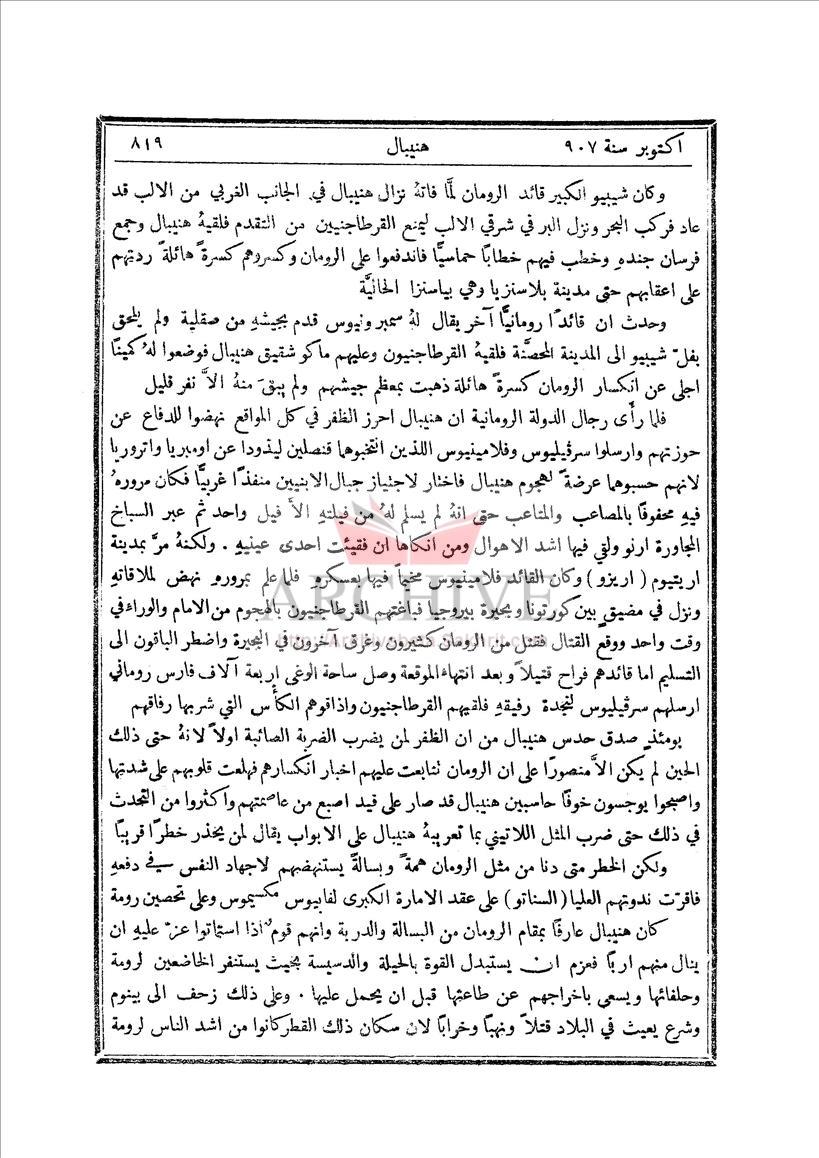 اكتوبر سنة ٩٠٧ هنيبال ٨١٩
وكان شيبيو الكبير قائد الرومان لمَّا فاتهُ نزال هنيبال في الجانب الغربي من الالب قد
عاد فركب البحر ونزل البر في شرقي الالب ليمنع القرطاجنيين من التقدم فلقيهُ هنيبال وجمع
فرسان جندهِ وخطب فيهم خطابًا حماسيًّا فاندفعوا على الرومان وكسروهم كسرةً هائلة ردتهم
على اعقابهم حتى مدينة بلاسنزيا وهي بياسنزا الحاليَّة
وحدث ان قائدًا رومانيًّا آخر يقال لهُ سمبرونيوس قدم بجيشهِ من صقلية ولم يلحق
بفلّ شيبيو الى المدينة المحصَّنة فلقيهُ القرطاجنيون وعليهم ماكو شقيق هنيبال فوضعوا لهُ كمينًا
اجلى عن انكسار الرومان كسرةً هائلة ذهبت بمعظم جيشهم ولم يبقَ منهُ الاَّ نفر قليل
فلما رأى رجال الدولة الرومانية ان هنيبال احرز الظفر في كل المواقع نهضوا للدفاع عن
حوزتهم وارسلوا سرڤيليوس وفلامينيوس اللذين انتخبوهما قنصلين ليذودا عن اومبريا واتروريا
لانهم حسبوهما عرضةً لهجوم هنيبال فاختار لاجتياز جبال الابنيين منفذًا غربيًّا فكان مرورهُ
فيهِ محفوفًا بالمصاعب والمتاعب حتى انهُ لم يسلم لهُ من فيلتهِ الاَّ فيل واحد ثم عبر السباخ
المجاورة ارنو ولقي فيها اشد الاهوال ومن انكاها ان فقيئت احدى عينيهِ . ولكنهُ مرَّ بمدينة
اريتيوم ( اريزو ) وكان القائد فلامينيوس مخيماً فيها بعسكرهِ فلما علم بمرورهِ نهض لملاقاتهِ
ونزل في مضيق بين كورتونا وبحيرة بيروجيا فباغتهم القرطاجنيون بالهجوم من الامام والوراء في
وقت واحد ووقع القتال فقتل من الرومان كثيرون وغرق آخرون في البحيرة واضطر الباقون الى
التسليم اما قائدهم فراح قتيلاً وبعد انتهاء الموقعة وصل ساحة الوغى اربعة آلاف فارس روماني
ارسلهم سرڤيليوس لنجدة رفيقهِ فلقيهم القرطاجنيون واذاقوهم الكأس التي شربها رفاقهم
يومئذٍ صدق حدس هنيبال من ان الظفر لمن يضرب الضربة الصائبة اولاً لانهُ حتى ذلك
الحين لم يكن الاَّ منصورًا على ان الرومان تتابعت عليهم اخبار انكسارهم فهلعت قلوبهم على شدتها
واصبحوا يوجسون خوفًا حاسبين هنيبال قد صار على قيد اصبع من عاصمتهم واكثروا من التحدث
في ذلك حتى ضرب المثل اللاتيني بما تعريبهُ هنيبال على الابواب يقال لمن يحذر خطرًا قريبًا
ولكن الخطر متى دنا من مثل الرومان همةً وبسالةً يستنهضهم لاجهاد النفس في دفعهِ
فاقرَّت ندوتهم العليا ( السناتو ) على عقد الامارة الكبرى لفابيوس مكسيموس وعلى تحصين رومة
كان هنيبال عارفًا بمقام الرومان من البسالة والدربة وانهم قوم اذا استماتوا عزَّ عليهِ ان
ينال منهم اربًا فعزم ان يستبدل القوة بالحيلة والدسيسة بحيث يستنفر الخاضعين لرومة
وحلفائها ويسعى باخراجهم عن طاعتها قبل ان يحمل عليها . وعلى ذلك زحف الى بينوم
وشرع يعيث في البلاد قتلاً ونهبًا وخرابًا لان سكان ذلك القطر كانوا من اشد الناس لرومة
ARCHIVE